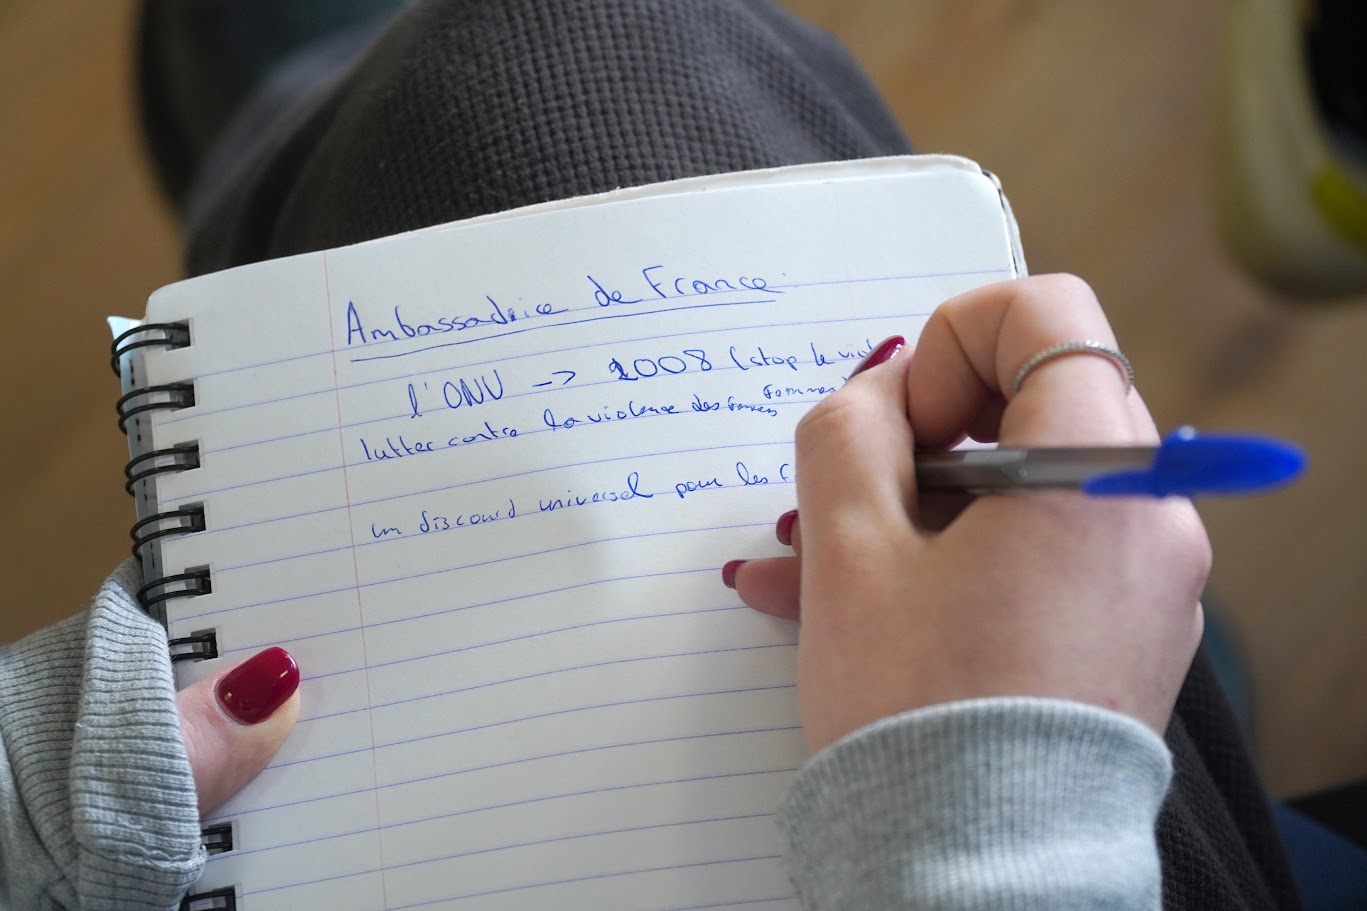 Ambassadrice de France
l'ONU -> 2008 (stop le viol
Femmes)
lutter contre la violence des femmes
un discourd universel pour les f